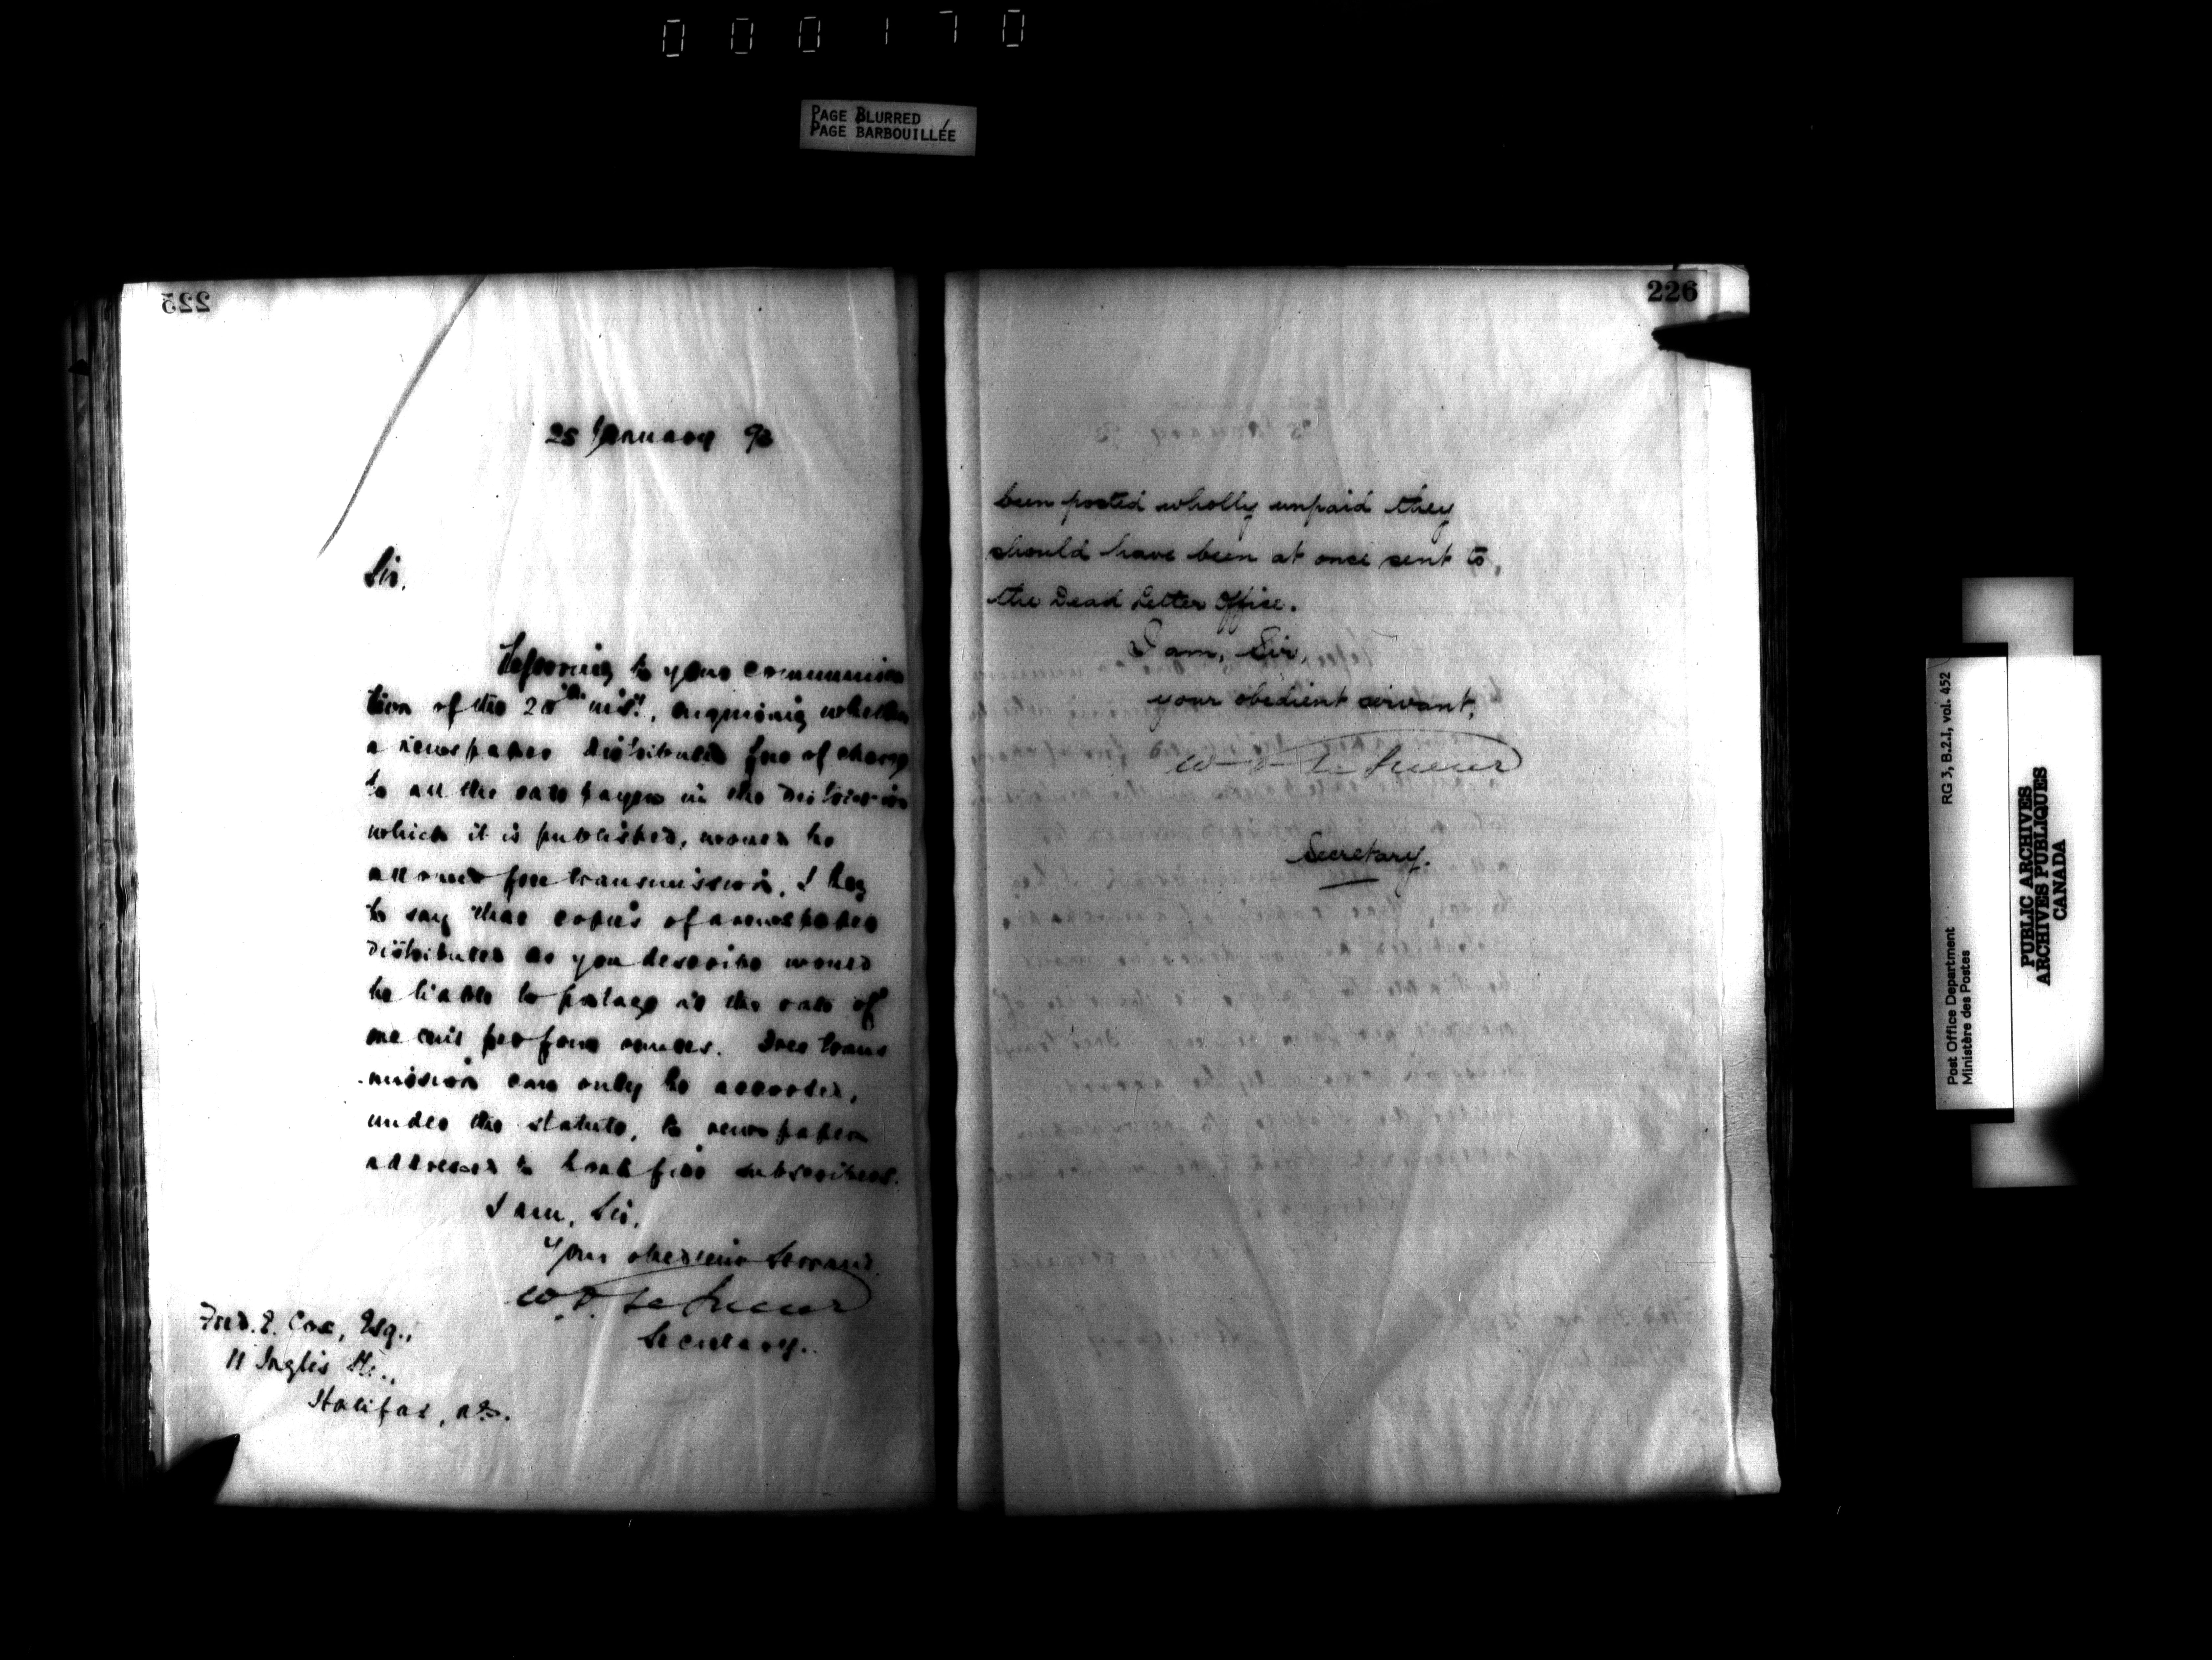 000170
PAGE BLURRED
PAGE BARBOUILLÉE
225
25 January 93
Sir,
Referring to your communica
tion of the 20th inst., enquiring whether
a newspaper distributed free of charge
to all the rate payers in the district in
which it is published, would be
allowed free transmission, I beg
to say that copies of a newspaper
distributed as you describe would
be liable to postage at the rate of
one cent per four ounces. Free trans
-mission can only be accorded,
under the statute, to newspapers
addressed to bonâ fide subscribers.
I am, Sir,
Your obedient Servant
W. D. Le Sueur
Secretary.
Fred. E. Cox, Esq.,
11 Inglis St.,
Halifax, N.S.
226
been posted wholly unpaid they
should have been at once sent to
the Dead Letter Office.
I am, Sir,
your obedient servant,
W D Le Sueur
Secretary.
Post Office Department RG 3, B.2.I, vol. 452
Ministère des Postes
PUBLIC ARCHIVES
ARCHIVES PUBLIQUES
CANADA